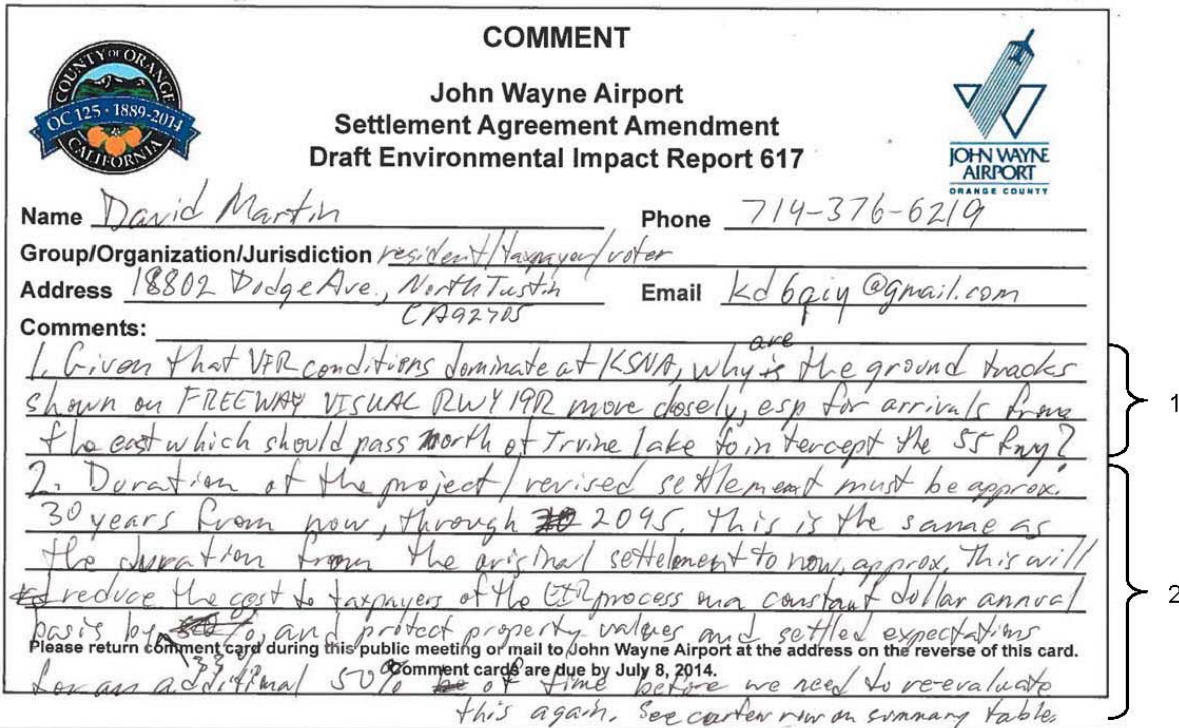 COMMENT
COUNTY OF ORANGE
OC 125 · 1889-2014
CALIFORNIA
John Wayne Airport
Settlement Agreement Amendment
Draft Environmental Impact Report 617
JOHN WAYNE
AIRPORT
ORANGE COUNTY
Name David Martin Phone 714-376-6219
Group/Organization/Jurisdiction resident/taxpayer/voter
Address 18802 Dodge Ave., North Tustin Email kd6piy@gmail.com
CA92705
Comments:
are
1. Given that VFR conditions dominate at KSNA, why the ground tracks
shown on FREEWAY VISUAL RWY 19R more closely, esp for arrivals from
the east which should pass north of Irvine Lake to intercept the 55 fwy?
1
2. Duration of the project/revised settlement must be approx.
30 years from now, through 2045. This is the same as
the duration from the original settelment to now, approx. This will
reduce the cost to taxpayers of the EIR process on a constant dollar annual
2
basis by and protect property values and settled expectations
Please return comment card during this public meeting or mail to John Wayne Airport at the address on the reverse of this card.
33%
Comment cards are due by July 8, 2014.
for an additional 50% of time before we need to re-evaluate
this again. See row on summary table.